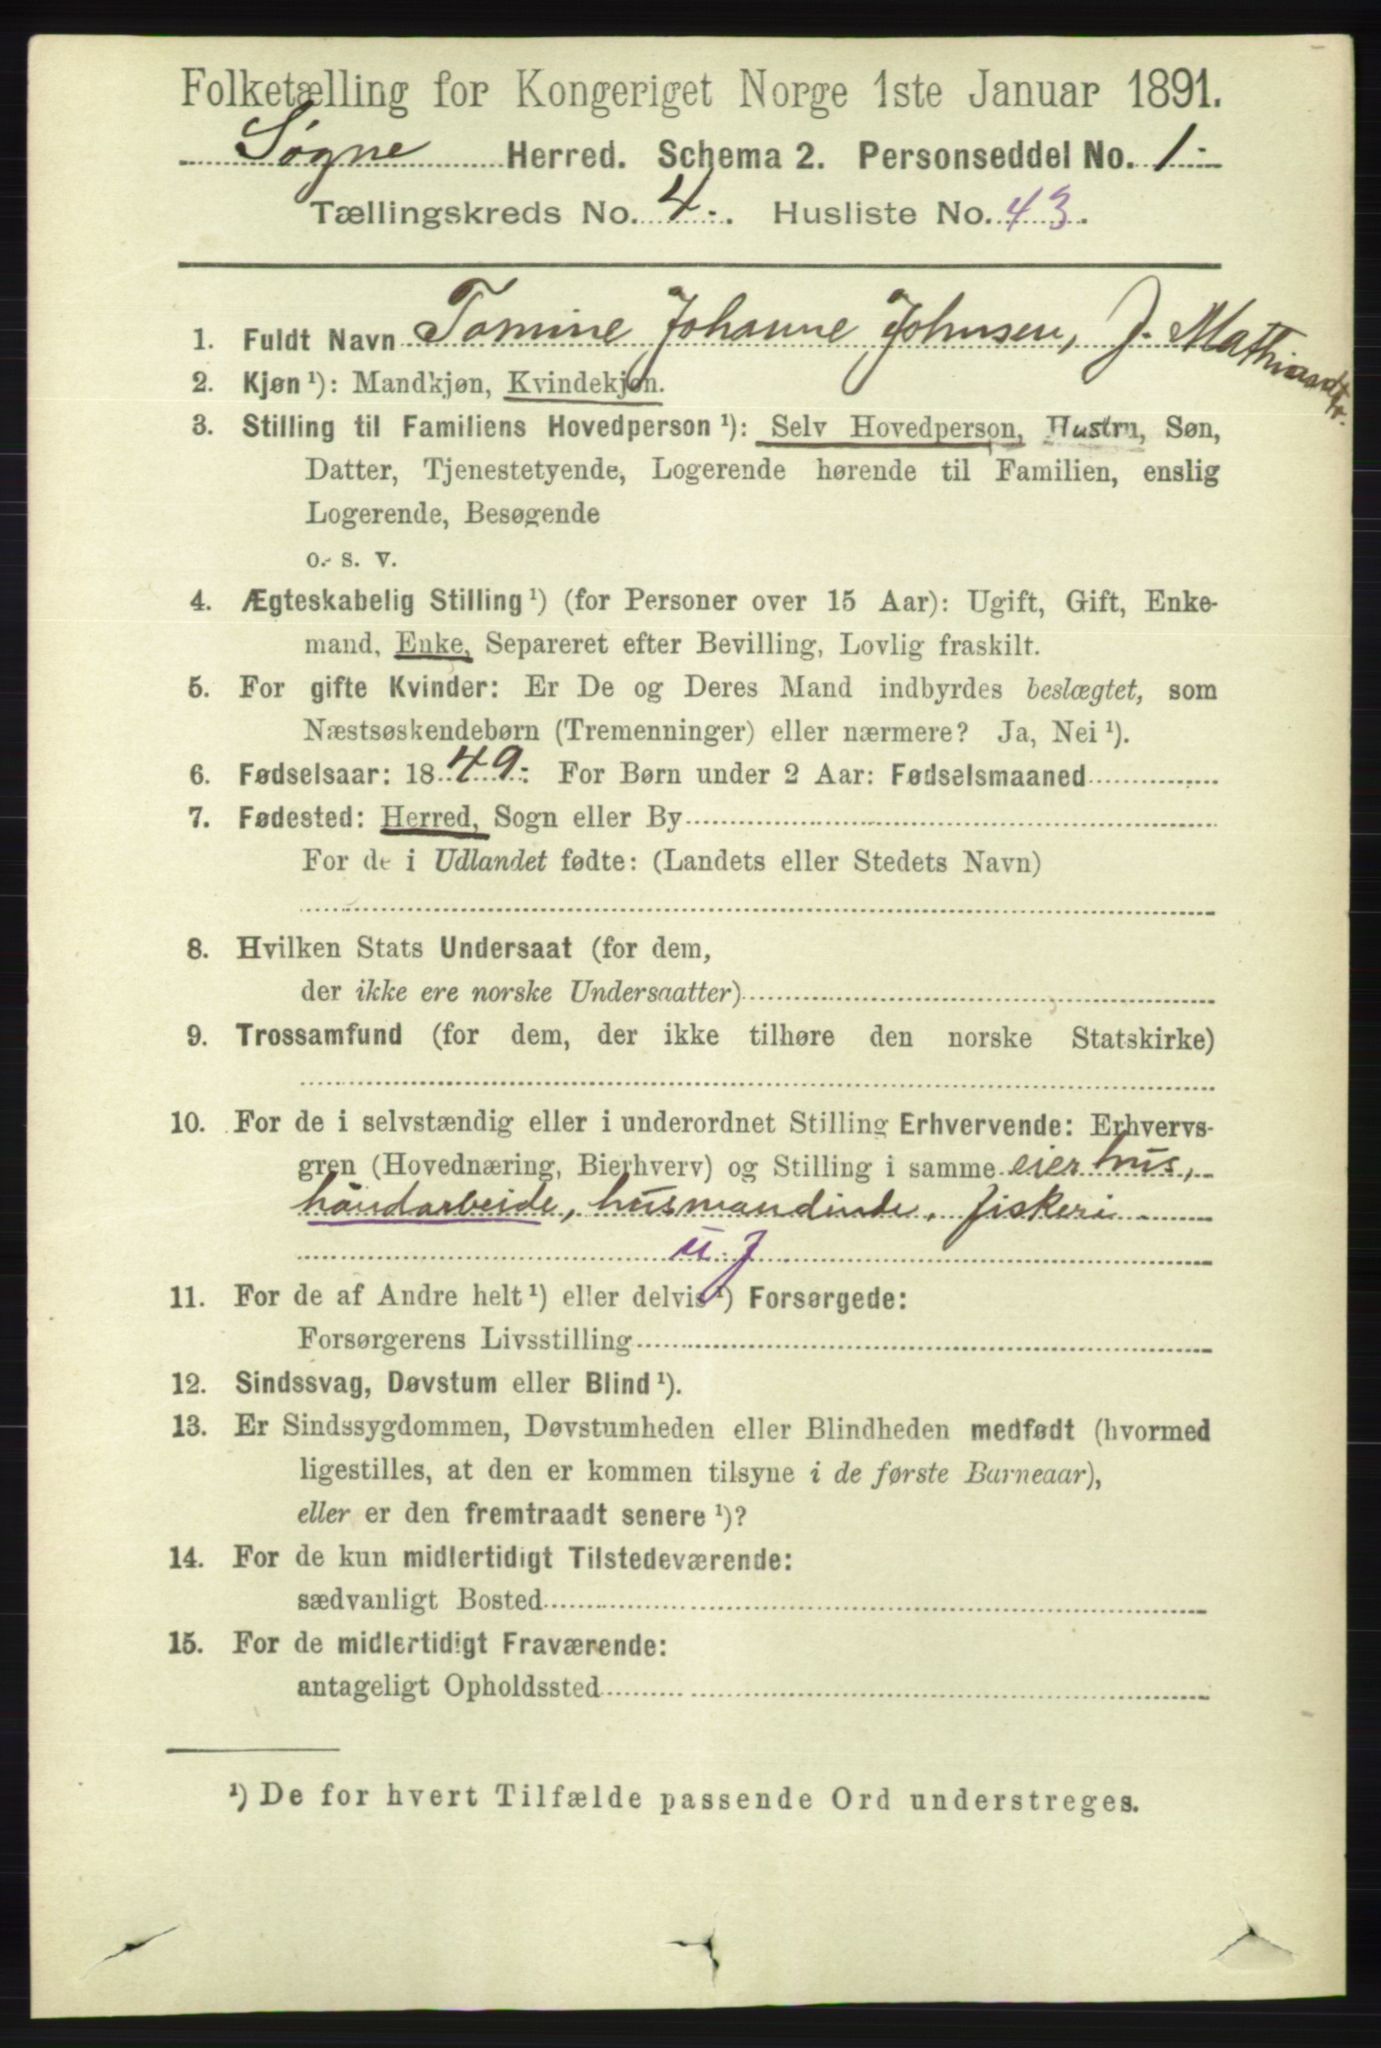 Folketælling for Kongeriget Norge 1ste Januar 1891.
Søgne Herred. Schema 2. Personseddel No. 1
Tællingskreds No. 4. Husliste No. 43.
1. Fuldt Navn Tomine Johanne Johnsen, J. Mathiasdtr.
2. Kjøn ¹): Mandkjøn, Kvindekjøn.
3. Stilling til Familiens Hovedperson ¹): Selv Hovedperson, Hustru, Søn,
Datter, Tjenestetyende, Logerende hørende til Familien, enslig
Logerende, Besøgende
o. s. v.
4. Ægteskabelig Stilling ¹) (for Personer over 15 Aar): Ugift, Gift, Enke-
mand, Enke, Separeret efter Bevilling, Lovlig fraskilt.
5. For gifte Kvinder: Er De og Deres Mand indbyrdes beslægtet, som
Næstsøskendebørn (Tremenninger) eller nærmere? Ja, Nei ¹).
6. Fødselsaar: 1849. For Børn under 2 Aar: Fødselsmaaned
7. Fødested: Herred, Sogn eller By
For de i Udlandet fødte: (Landets eller Stedets Navn)
8. Hvilken Stats Undersaat (for dem,
der ikke ere norske Undersaatter)
9. Trossamfund (for dem, der ikke tilhøre den norske Statskirke)
10. For de i selvstændig eller i underordnet Stilling Erhvervende: Erhvervs-
gren (Hovednæring, Bierhverv) og Stilling i samme eier hus,
håndarbeide, husmandinde, fiskeri
u. f
11. For de af Andre helt ¹) eller delvis ¹) Forsørgede:
Forsørgerens Livsstilling
12. Sindssvag, Døvstum eller Blind ¹).
13. Er Sindssygdommen, Døvstumheden eller Blindheden medfødt (hvormed
ligestilles, at den er kommen tilsyne i de første Barneaar),
eller er den fremtraadt senere ¹)?
14. For de kun midlertidigt Tilstedeværende:
sædvanligt Bosted
15. For de midlertidigt Fraværende:
antageligt Opholdssted
¹) De for hvert Tilfælde passende Ord understreges.